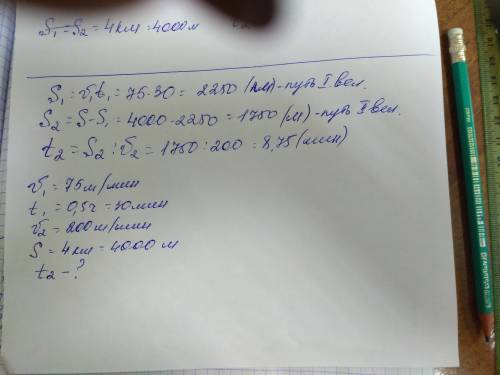 S₁ - S₂ = 4 км = 4000 м
S₁ = v₁t₁ = 75·30 = 2250 (км) - путь I вел.
S₂ = S-S₁ = 4000-2250 = 1750 (м) - путь II вел.
t₂ = S₂ : v₂ = 1750 : 200 = 8,75 (мин)
v₁ = 75 м/мин
t₁ = 0,5 ч = 30 мин
v₂ = 200 м/мин
S = 4 км = 4000 м
t₂ - ?